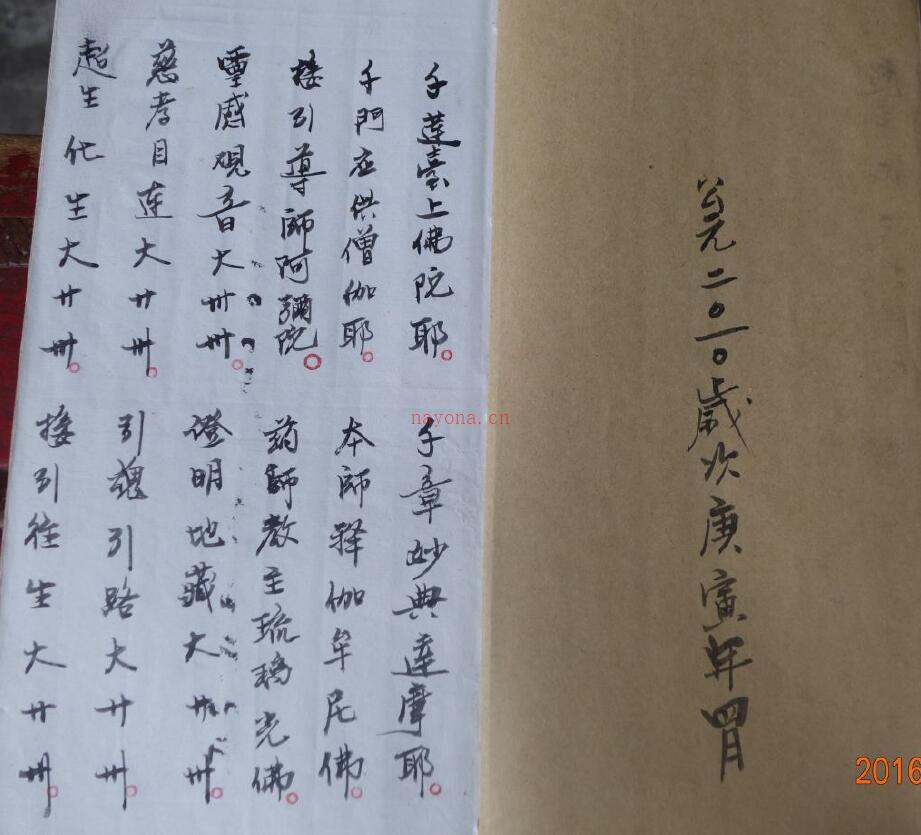 公元二〇一〇歲次庚寅年四月
千莲臺上佛陀耶。千章妙典達摩耶。
千門应供僧伽耶。本師释伽牟尼佛。
接引導師阿彌陀。药師教主琉璃光佛。
靈感观音大卅卌。證明地藏大廾卌。
慈孝目連大廾卌。引魂引路大廾卌。
超生化生大廾卌。接引往生大廾卌。
nayona.cn
2016